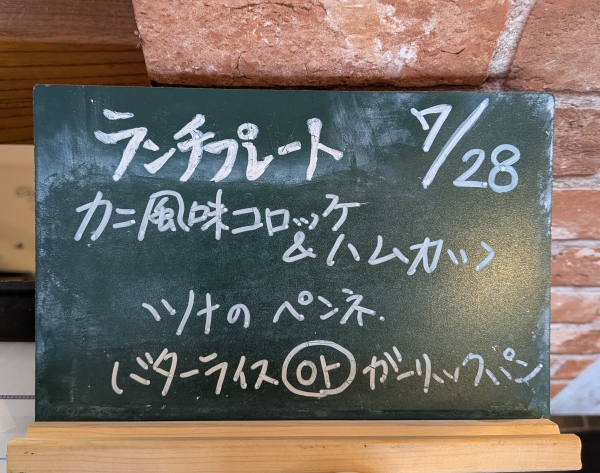 ランチプレート 7/28
カニ風味コロッケ
&ハムカツ
ツナのペンネ.
バターライス or ガーリックパン